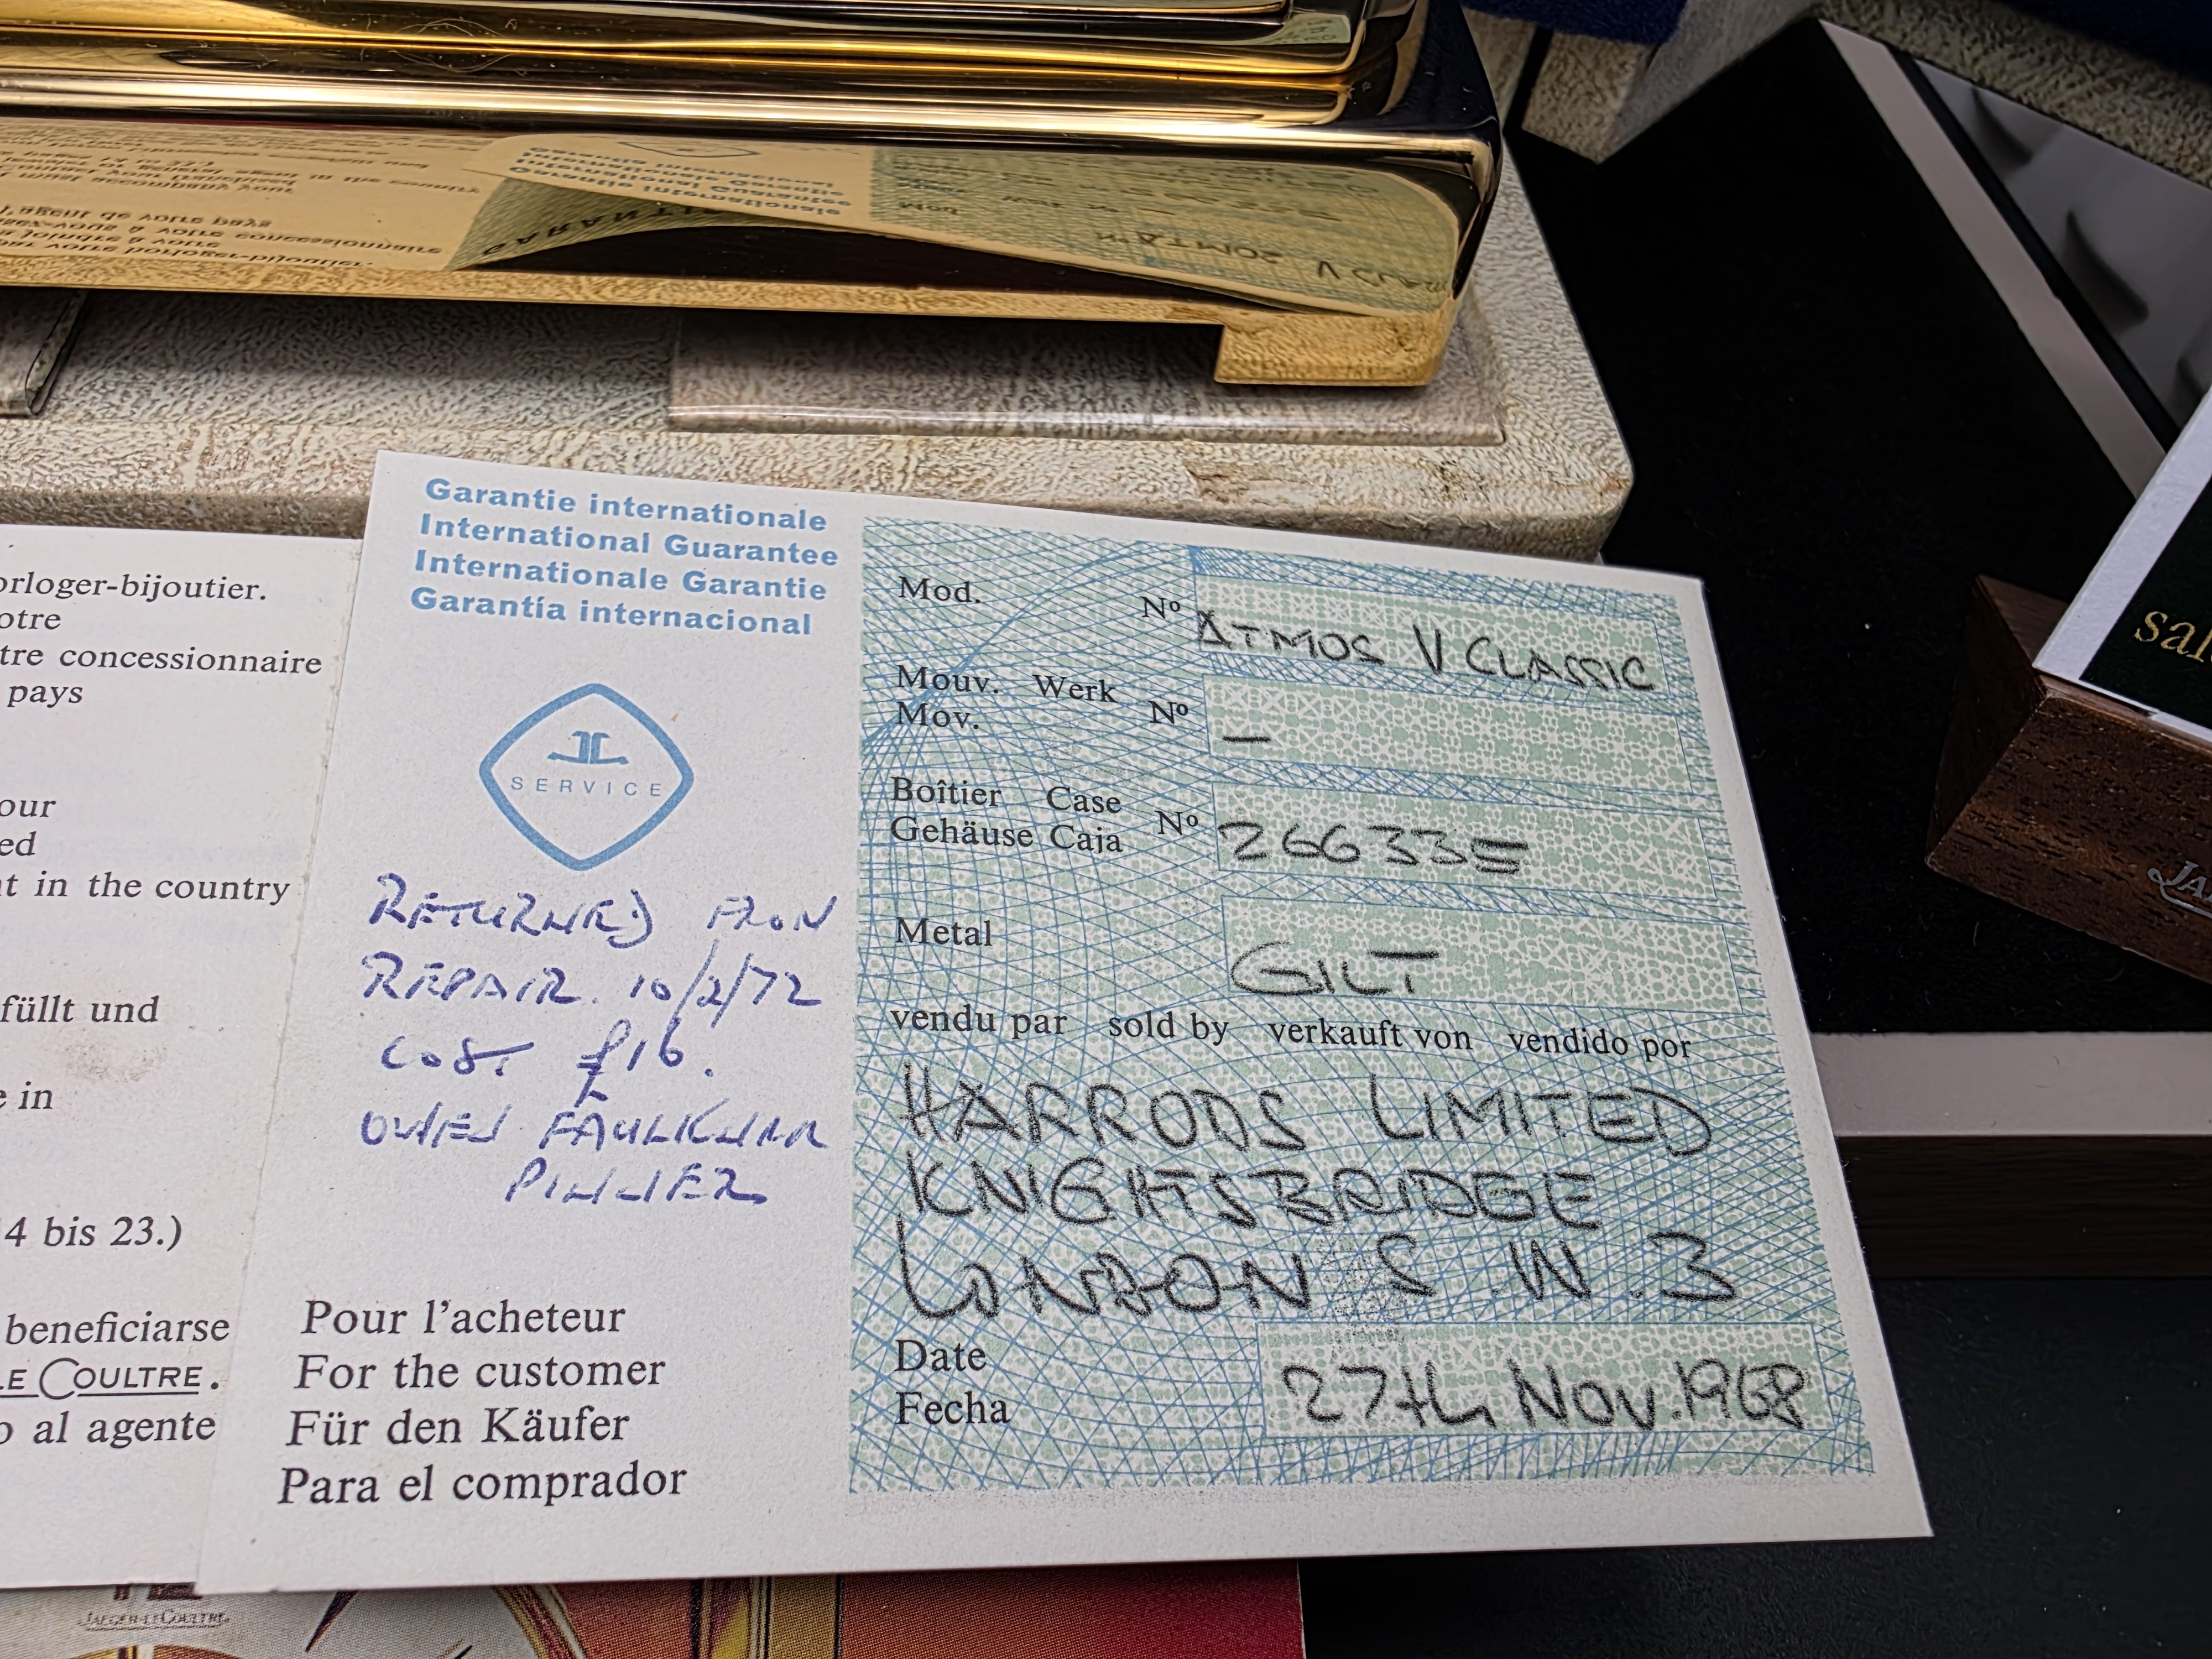 orloger-bijoutier.
otre
tre concessionnaire
pays
our
ed
t in the country
füllt und
e in
4 bis 23.)
beneficiarse
LE COULTRE.
o al agente
Garantie internationale
International Guarantee
Internationale Garantie
Garantía internacional
SERVICE
RETURNED FROM
REPAIR. 10/2/72
COST £16.
OWEN FAULKNER
PINNER
Pour l'acheteur
For the customer
Für den Käufer
Para el comprador
Mod. Nº ATMOS V CLASSIC
Mouv. Werk
Mov. Nº —
Boîtier Case
Gehäuse Caja Nº 266335
Metal GILT
vendu par sold by verkauft von vendido por
HARRODS LIMITED
KNIGHTSBRIDGE
LONDON S.W.3
Date
Fecha 27th Nov. 1968
JAEGER-LECOULTRE
sal
JA